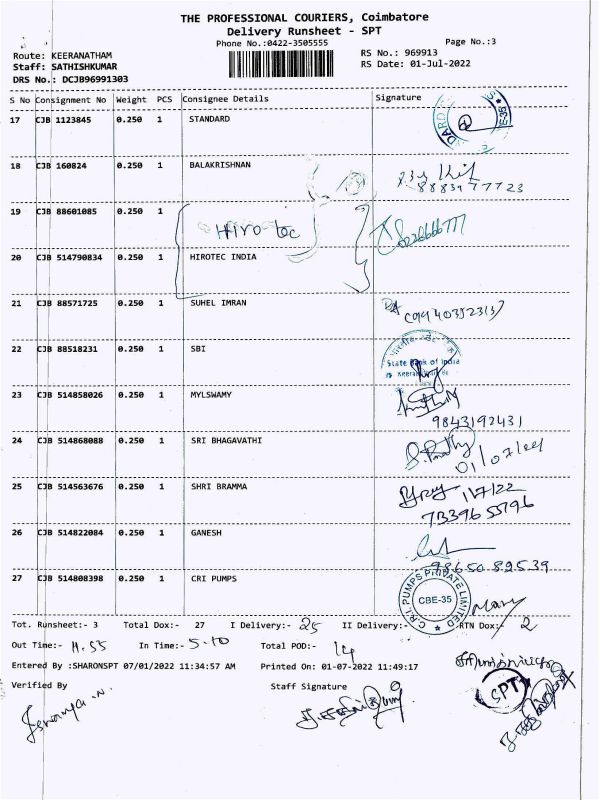 THE PROFESSIONAL COURIERS, Coimbatore
Delivery Runsheet - SPT
Phone No.:0422-3505555
Page No.:3
Route: KEERANATHAM
RS No.: 969913
Staff: SATHISHKUMAR
RS Date: 01-Jul-2022
DRS No.: DCJB96991303
S No Consignment No Weight PCS Consignee Details Signature
17 CJB 1123845 0.250 1 STANDARD
18 CJB 160824 0.250 1 BALAKRISHNAN
8883977723
19 CJB 88601085 0.250 1
Hirotec
20 CJB 514790834 0.250 1 HIROTEC INDIA
21 CJB 88571725 0.250 1 SUHEL IMRAN
22 CJB 88518231 0.250 1 SBI
State Bank of India
23 CJB 514858026 0.250 1 MYLSWAMY
9843192431
24 CJB 514868088 0.250 1 SRI BHAGAVATHI
25 CJB 514563676 0.250 1 SHRI BRAMMA
1/7/22
7339655796
26 CJB 514822084 0.250 1 GANESH
98650 89539
27 CJB 514808398 0.250 1 CRI PUMPS
C.R.I. PUMPS PRIVATE LIMITED
CBE-35
Tot. Runsheet:- 3 Total Dox:- 27 I Delivery:- 25 II Delivery:- RTN Dox:- 2
Out Time:- 11.55 In Time:- 5.10 Total POD:- 14
Entered By :SHARONSPT 07/01/2022 11:34:57 AM Printed On: 01-07-2022 11:49:17
Verified By Staff Signature
SPT